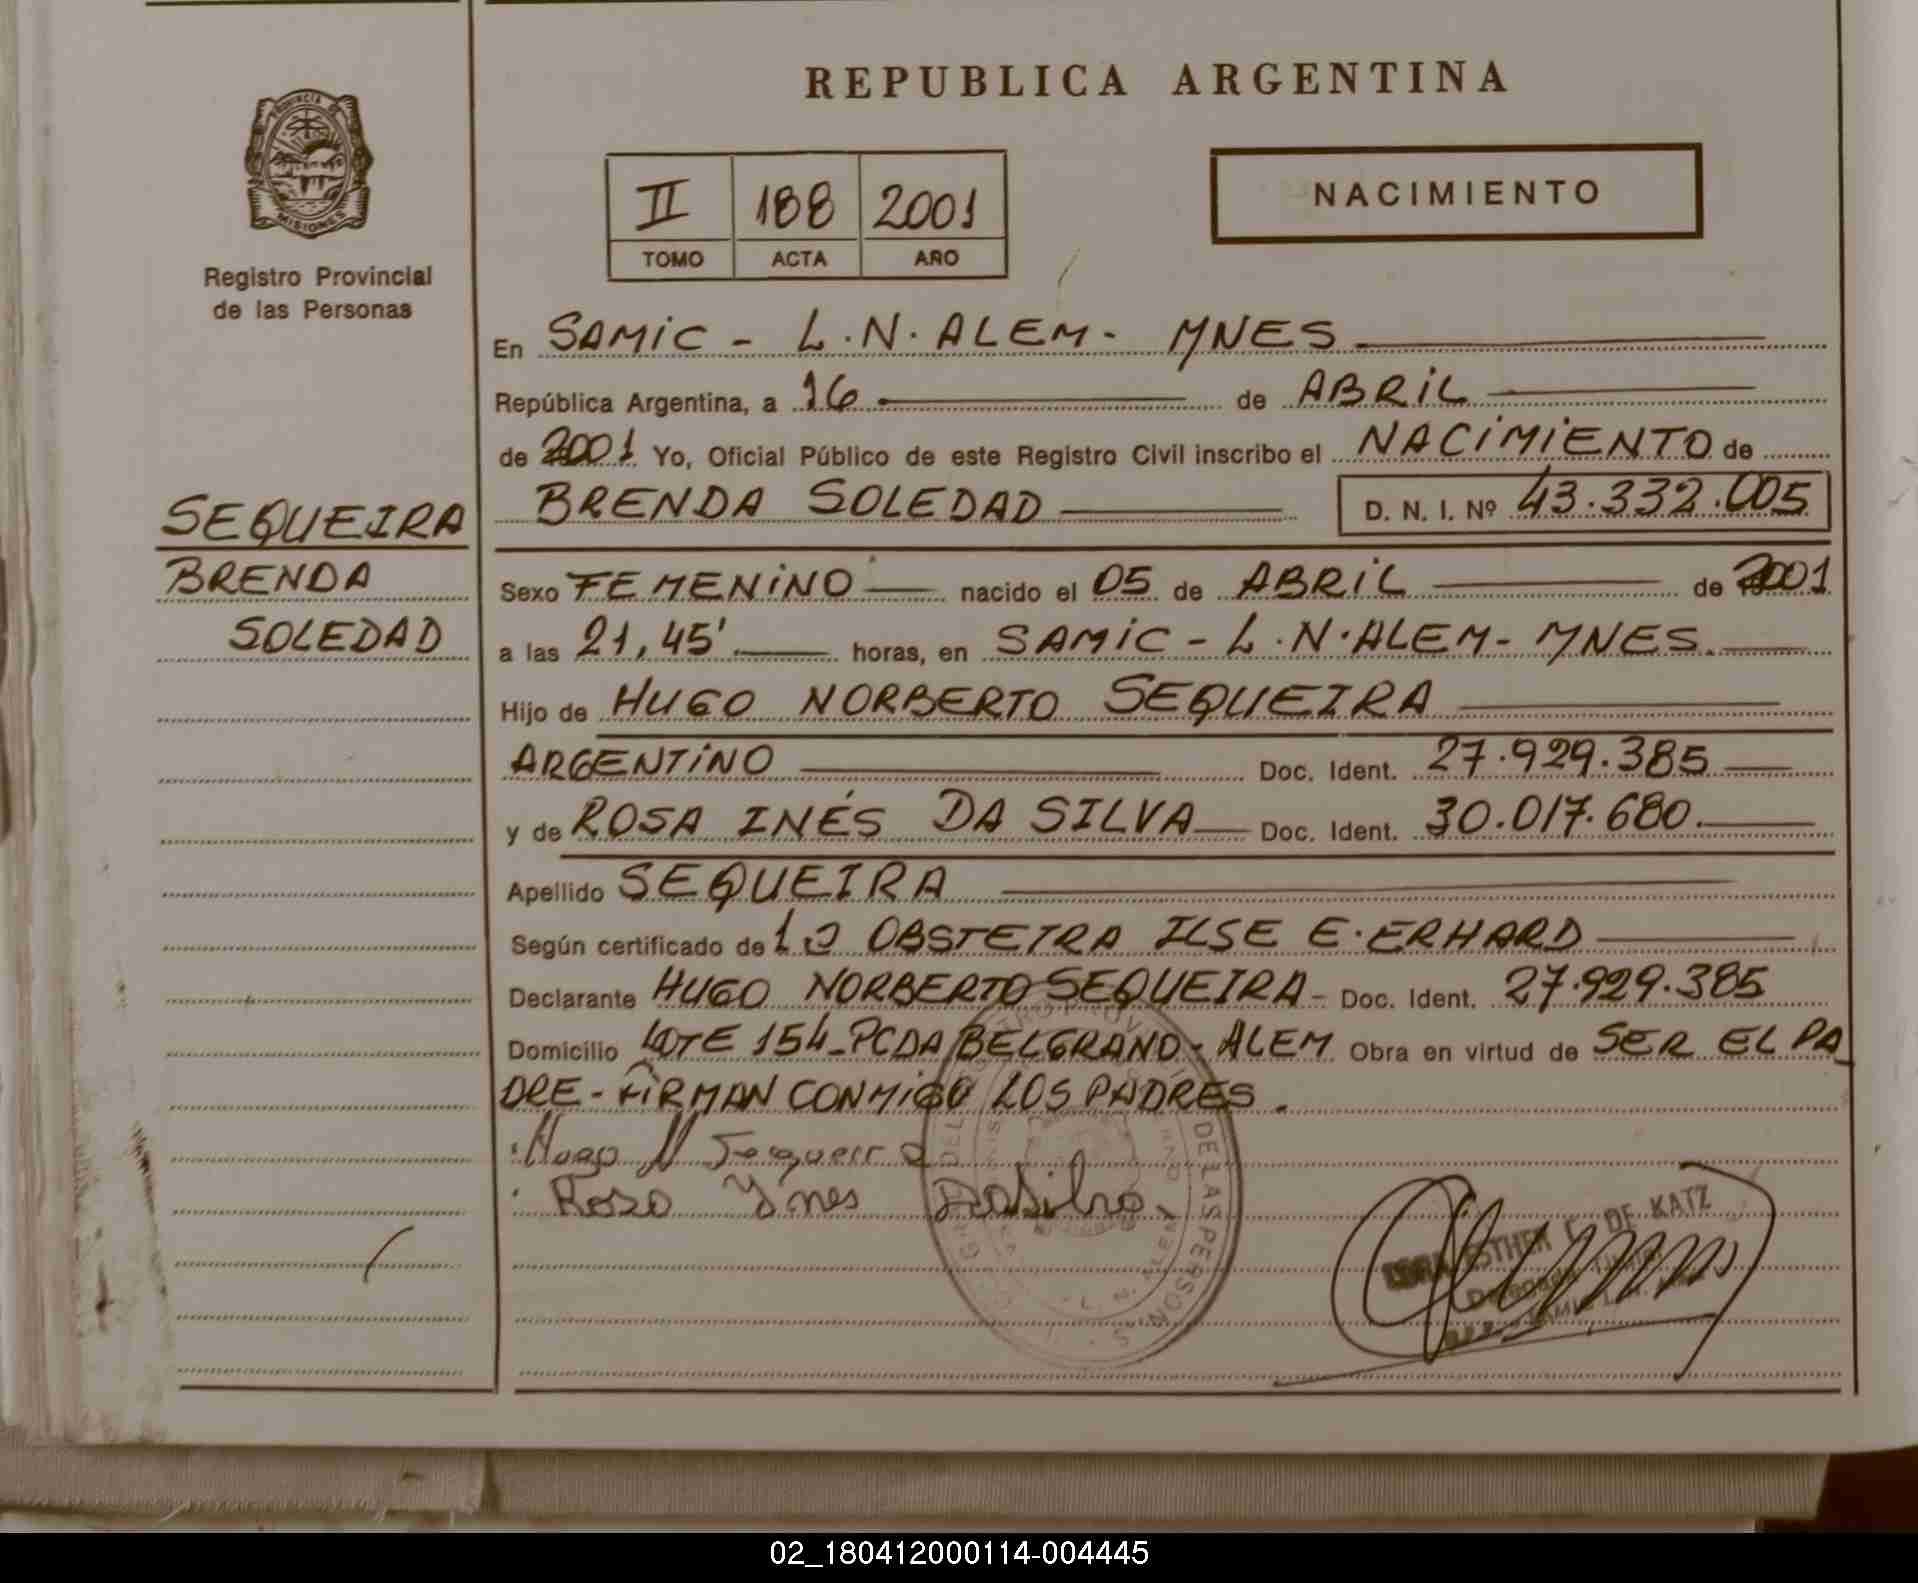 REPUBLICA ARGENTINA
PROVINCIA DE
MISIONES
Registro Provincial
de las Personas
II 188 2001
TOMO ACTA AÑO
NACIMIENTO
En SAMIC - L.N. ALEM - MNES
República Argentina, a 16 de ABRIL
de 2001 Yo, Oficial Público de este Registro Civil inscribo el NACIMIENTO de
BRENDA SOLEDAD D. N. I. Nº 43.332.005
SEQUEIRA
BRENDA
SOLEDAD
Sexo FEMENINO nacido el 05 de ABRIL de 2001
a las 21,45' horas, en SAMIC - L.N. ALEM - MNES.
Hijo de HUGO NORBERTO SEQUEIRA
ARGENTINO Doc. Ident. 27.929.385
y de ROSA INÉS DA SILVA Doc. Ident. 30.017.680.
Apellido SEQUEIRA
Según certificado de la OBSTETRA ILSE E. ERHARD
Declarante HUGO NORBERTO SEQUEIRA - Doc. Ident. 27.929.385
Domicilio LOTE 154 - PCDA BELGRANO - ALEM Obra en virtud de SER EL PA_
DRE - FIRMAN CONMIGO LOS PADRES.
Hugo N Sequeira
Rosa Ynes DaSilva
DE LAS PERSONAS
L. N. ALEM
ESTHER F. DE KATZ
Delegada Titular
02_180412000114-004445